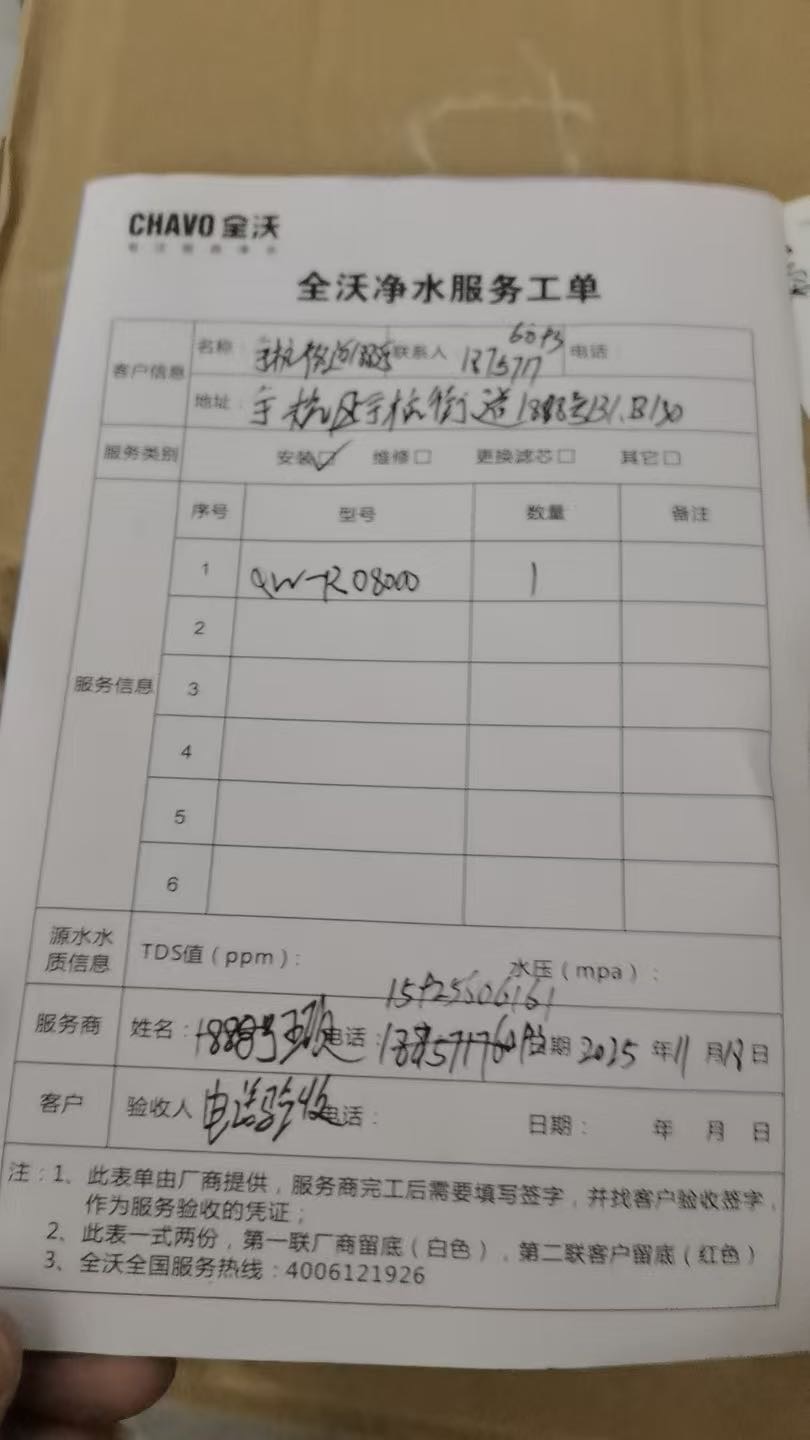 CHAVO 全沃
全沃净水服务工单
客户信息 名称： 联系人 电话
地址：
服务类别 安装☑ 维修□ 更换滤芯□ 其它□
服务信息 序号 型号 数量 备注
1 QW-RO8000 1
2
3
4
5
6
源水水质信息 TDS值（ppm）： 水压（mpa）：
服务商 姓名： 电话： 日期 2025 年 11 月 18 日
客户 验收人 电话： 日期： 年 月 日
注：1、此表单由厂商提供，服务商完工后需要填写签字，并找客户验收签字，
作为服务验收的凭证；
2、此表一式两份，第一联厂商留底（白色），第二联客户留底（红色）
3、全沃全国服务热线：4006121926